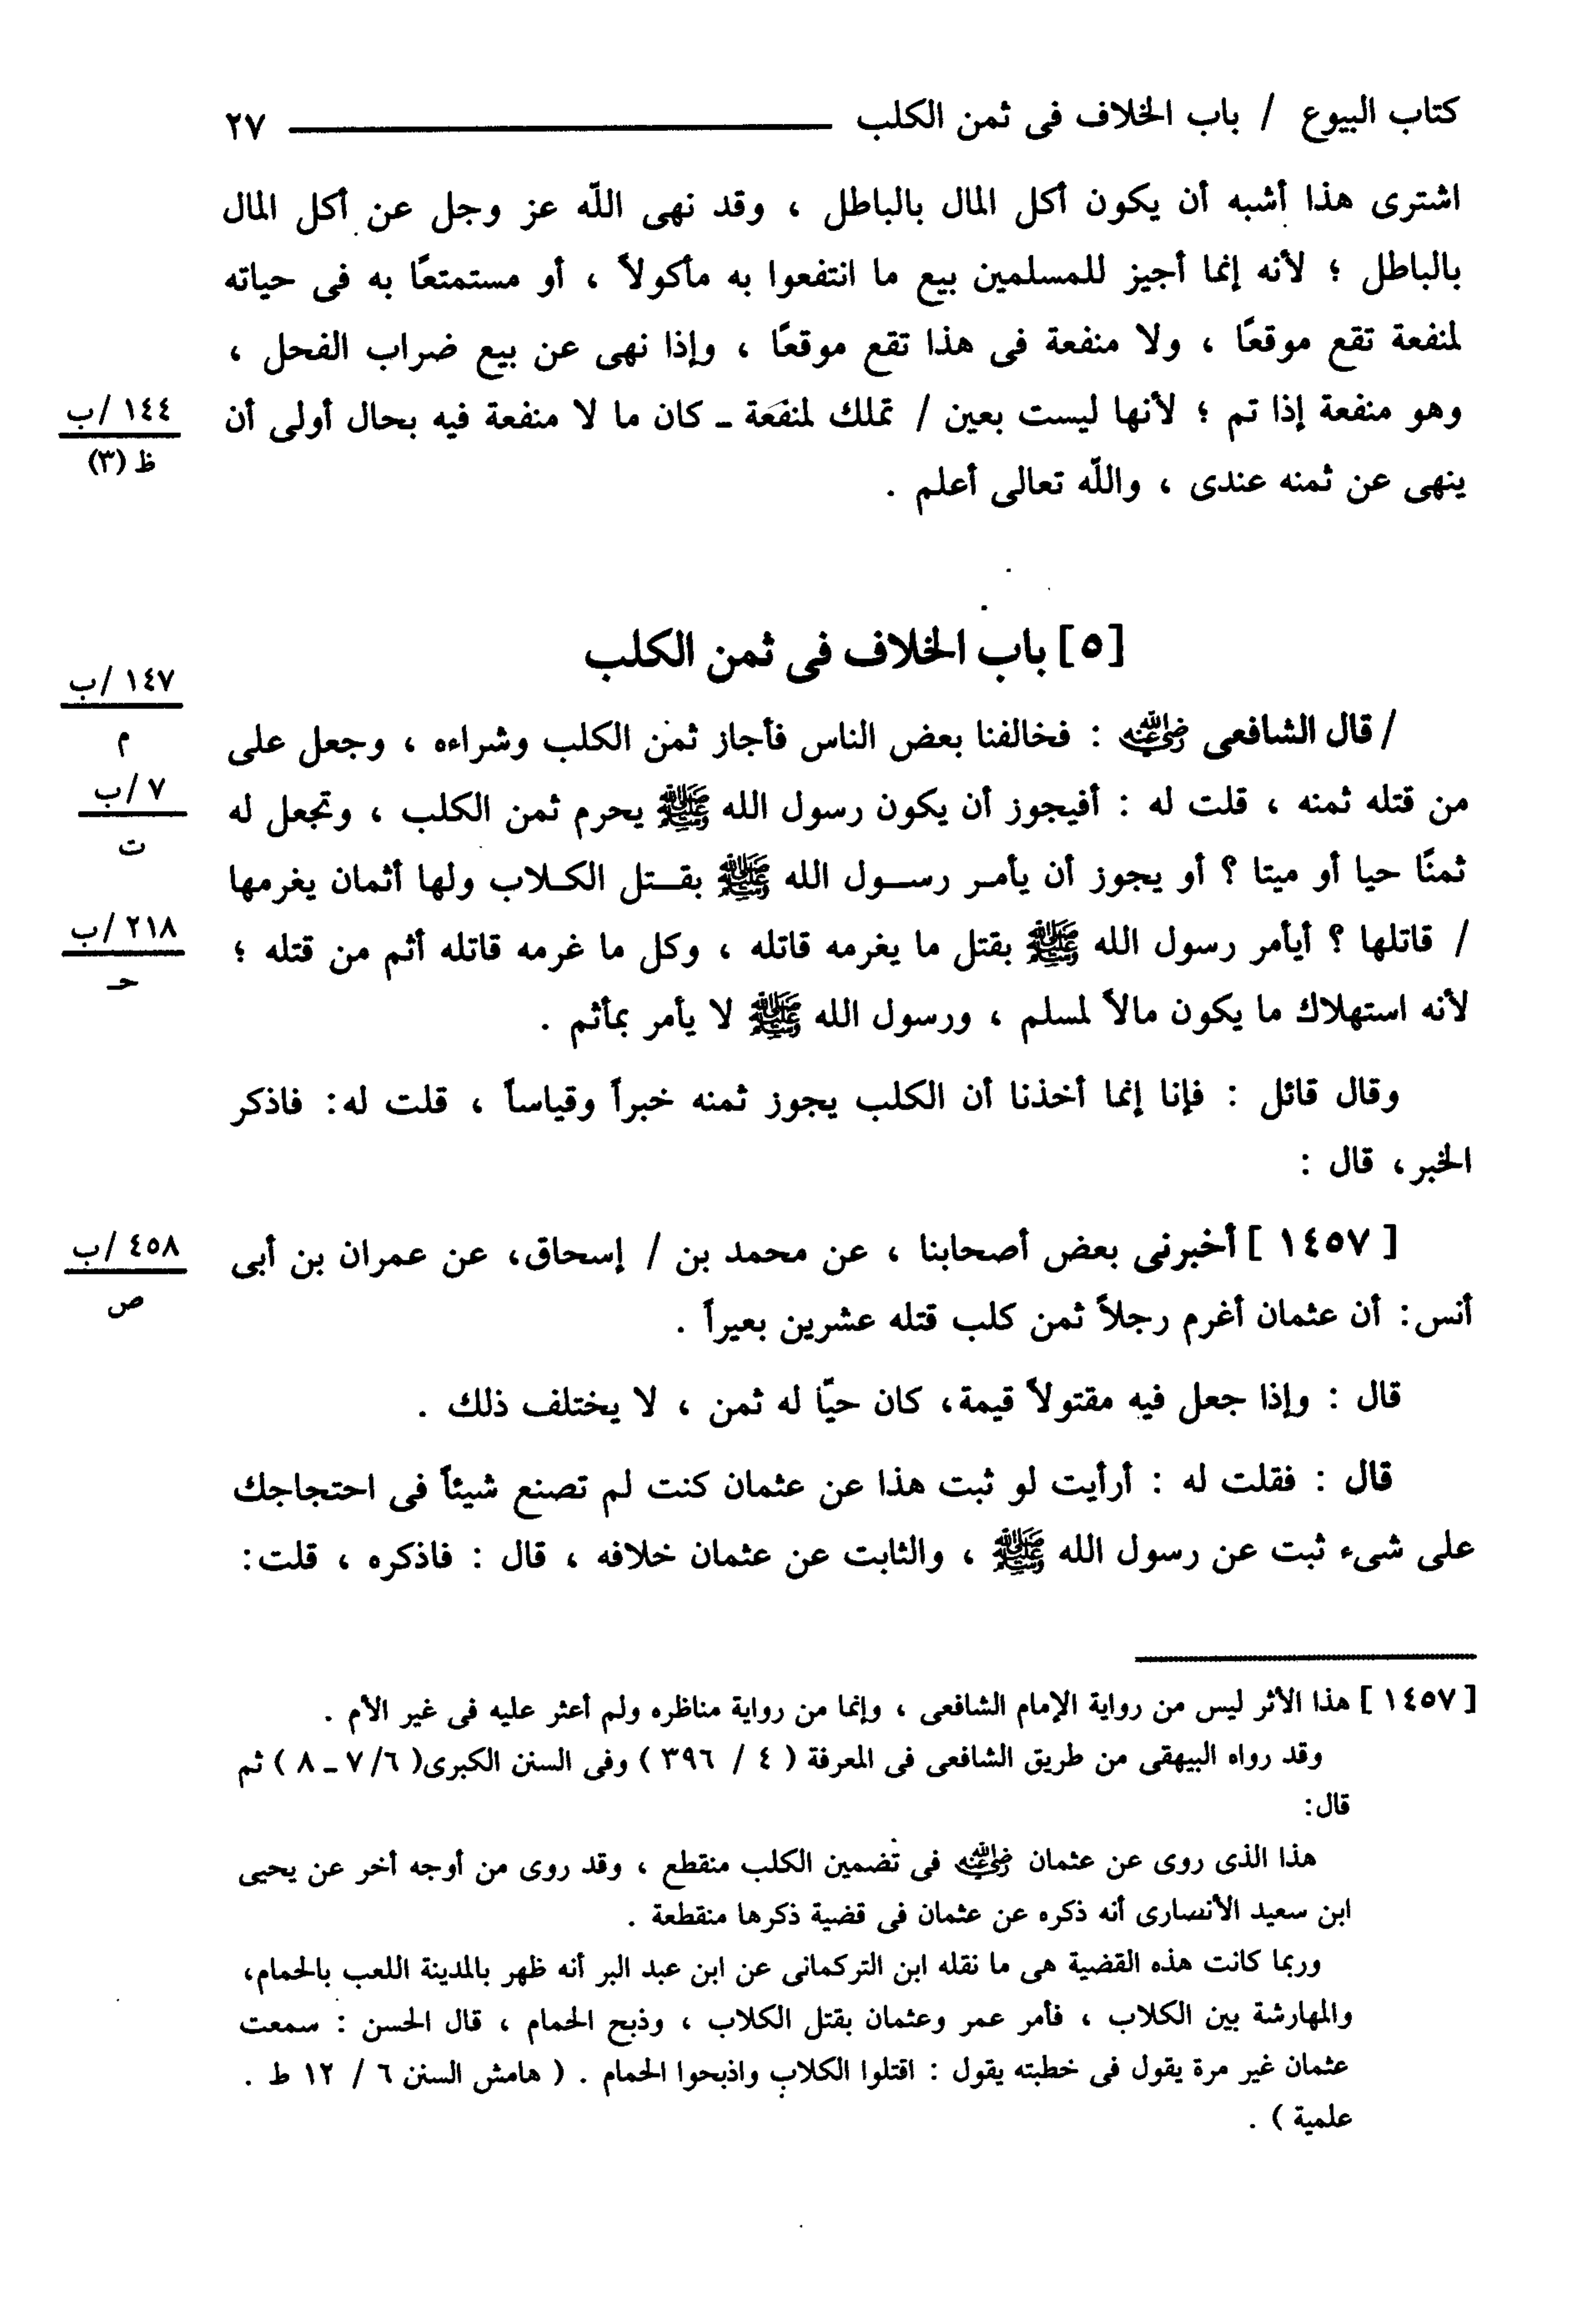 كتاب البيوع / باب الخلاف فى ثمن الكلب ـــــــ ٢٧
اشترى هذا أشبه أن يكون أكل المال بالباطل ، وقد نهى اللّه عز وجل عن أكل المال
بالباطل ؛ لأنه إنما أجيز للمسلمين بيع ما انتفعوا به مأكولاً ، أو مستمتعًا به فى حياته
لمنفعة تقع موقعًا ، ولا منفعة فى هذا تقع موقعًا ، وإذا نهى عن بيع ضراب الفحل ،
وهو منفعة إذا تم ؛ لأنها ليست بعين / تملك لمنفَعة ـ كان ما لا منفعة فيه بحال أولى أن
١٤٤ /ب
ظ (٣)
ينهى عن ثمنه عندى ، واللّه تعالى أعلم .
[٥] باب الخلاف فى ثمن الكلب
١٤٧ /ب
م
/ قال الشافعى رضي الله عنه : فخالفنا بعض الناس فأجاز ثمن الكلب وشراءه ، وجعل على
٧ /ب
ت
من قتله ثمنه ، قلت له : أفيجوز أن يكون رسول الله ﷺ يحرم ثمن الكلب ، وتجعل له
ثمنًا حيا أو ميتا ؟ أو يجوز أن يأمـر رســول الله ﷺ بقــتل الكـلاب ولها أثمان يغرمها
٢١٨ /ب
حـ
/ قاتلها ؟ أيأمر رسول الله ﷺ بقتل ما يغرمه قاتله ، وكل ما غرمه قاتله أثم من قتله ؛
لأنه استهلاك ما يكون مالاً لمسلم ، ورسول الله ﷺ لا يأمر بمأثم .
وقال قائل : فإنا إنما أخذنا أن الكلب يجوز ثمنه خبراً وقياساً ، قلت له: فاذكر
الخبر، قال :
[ ١٤٥٧ ] أخبرنى بعض أصحابنا ، عن محمد بن / إسحاق، عن عمران بن أبى
٤٥٨ /ب
ص
أنس: أن عثمان أغرم رجلاً ثمن كلب قتله عشرين بعيراً .
قال : وإذا جعل فيه مقتولاً قيمة، كان حيّا له ثمن ، لا يختلف ذلك .
قال : فقلت له : أرأيت لو ثبت هذا عن عثمان كنت لم تصنع شيئاً فى احتجاجك
على شىء ثبت عن رسول الله ﷺ ، والثابت عن عثمان خلافه ، قال : فاذكره ، قلت:
[ ١٤٥٧ ] هذا الأثر ليس من رواية الإمام الشافعى ، وإنما من رواية مناظره ولم أعثر عليه فى غير الأم .
وقد رواه البيهقى من طريق الشافعى فى المعرفة ( ٤ / ٣٩٦ ) وفى السنن الكبرى( ٦/ ٧ ـ ٨ ) ثم
قال:
هذا الذى روى عن عثمان رضي الله عنه فى تضمين الكلب منقطع ، وقد روى من أوجه أخر عن يحيى
ابن سعيد الأنصارى أنه ذكره عن عثمان فى قضية ذكرها منقطعة .
وربما كانت هذه القضية هى ما نقله ابن التركمانى عن ابن عبد البر أنه ظهر بالمدينة اللعب بالحمام،
والمهارشة بين الكلاب ، فأمر عمر وعثمان بقتل الكلاب ، وذبح الحمام ، قال الحسن : سمعت
عثمان غير مرة يقول فى خطبته يقول : اقتلوا الكلاب واذبحوا الحمام . ( هامش السنن ٦ / ١٢ ط .
علمية ) .